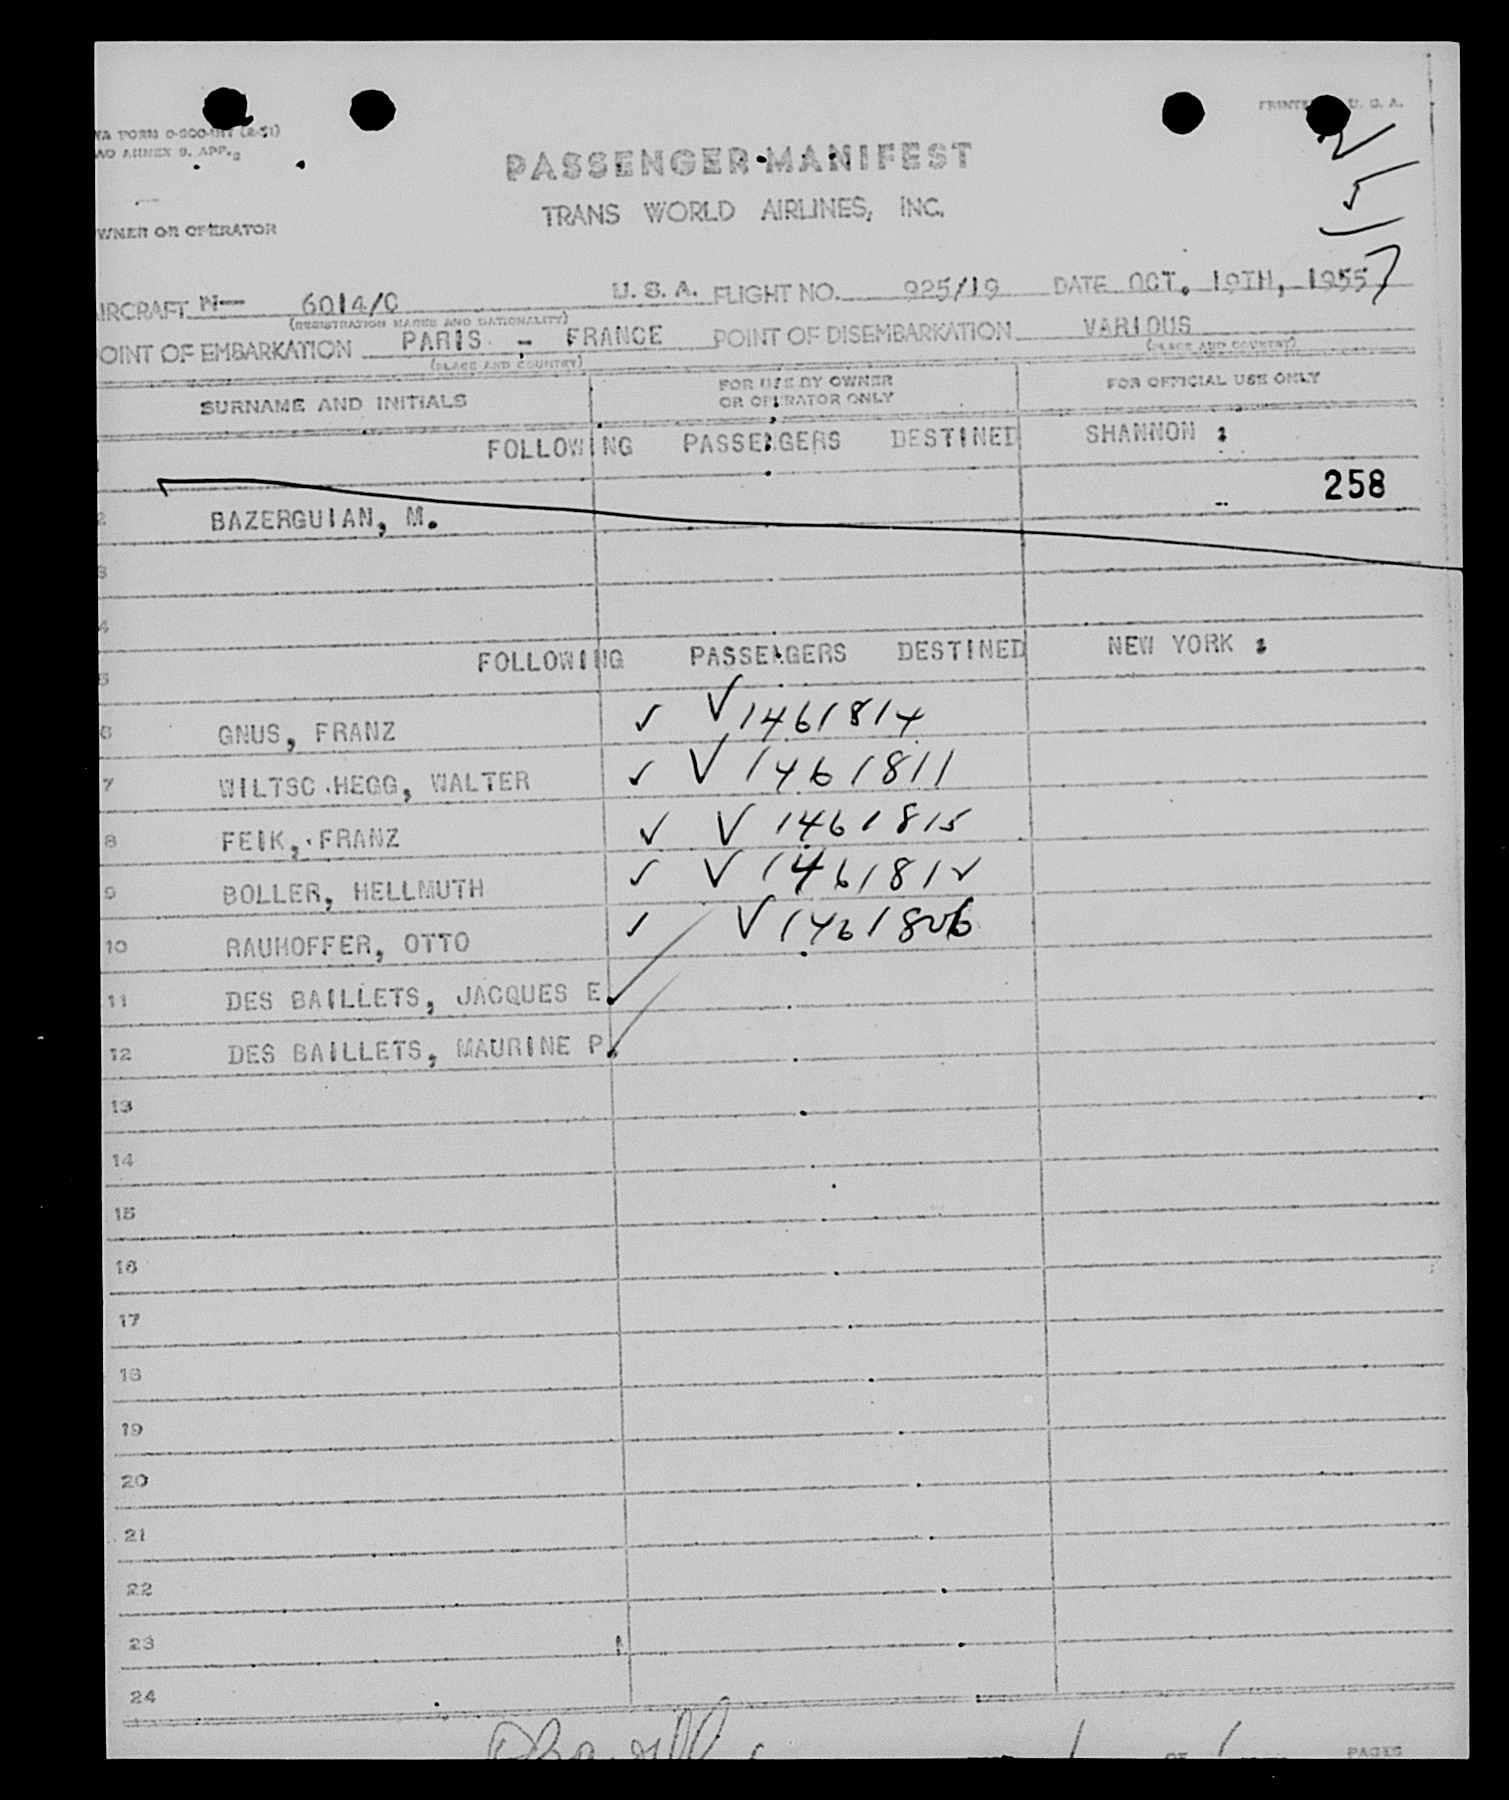 PRINTED U. S. A.
WA FORM 0-200-INT (2-51)
AO ANNEX 9. APP.
PASSENGER MANIFEST
TRANS WORLD AIRLINES, INC.
WNER OR OPERATOR
IRCRAFT N— 6014/C U. S. A. FLIGHT NO. 925/19 DATE OCT. 19TH, 1955
(REGISTRATION MARKS AND NATIONALITY)
OINT OF EMBARKATION PARIS - FRANCE POINT OF DISEMBARKATION VARIOUS
(PLACE AND COUNTRY) (PLACE AND COUNTRY)
SURNAME AND INITIALS FOR USE BY OWNER OR OPERATOR ONLY FOR OFFICIAL USE ONLY
FOLLOWING PASSENGERS DESTINED SHANNON :
258
2 BAZERGUIAN, M.
3
4
FOLLOWING PASSENGERS DESTINED NEW YORK :
5
6 GNUS, FRANZ ✓ ✓ 1461814
7 WILTSC HEGG, WALTER ✓ ✓ 1461811
8 FEIK, FRANZ ✓ ✓ 1461815
9 BOLLER, HELLMUTH ✓ ✓ 1461812
10 RAUHOFFER, OTTO ✓ ✓
11 DES BAILLETS, JACQUES E.
12 DES BAILLETS, MAURINE P.
13
14
15
16
17
18
19
20
21
22
23
24
1 OF 1 PAGES